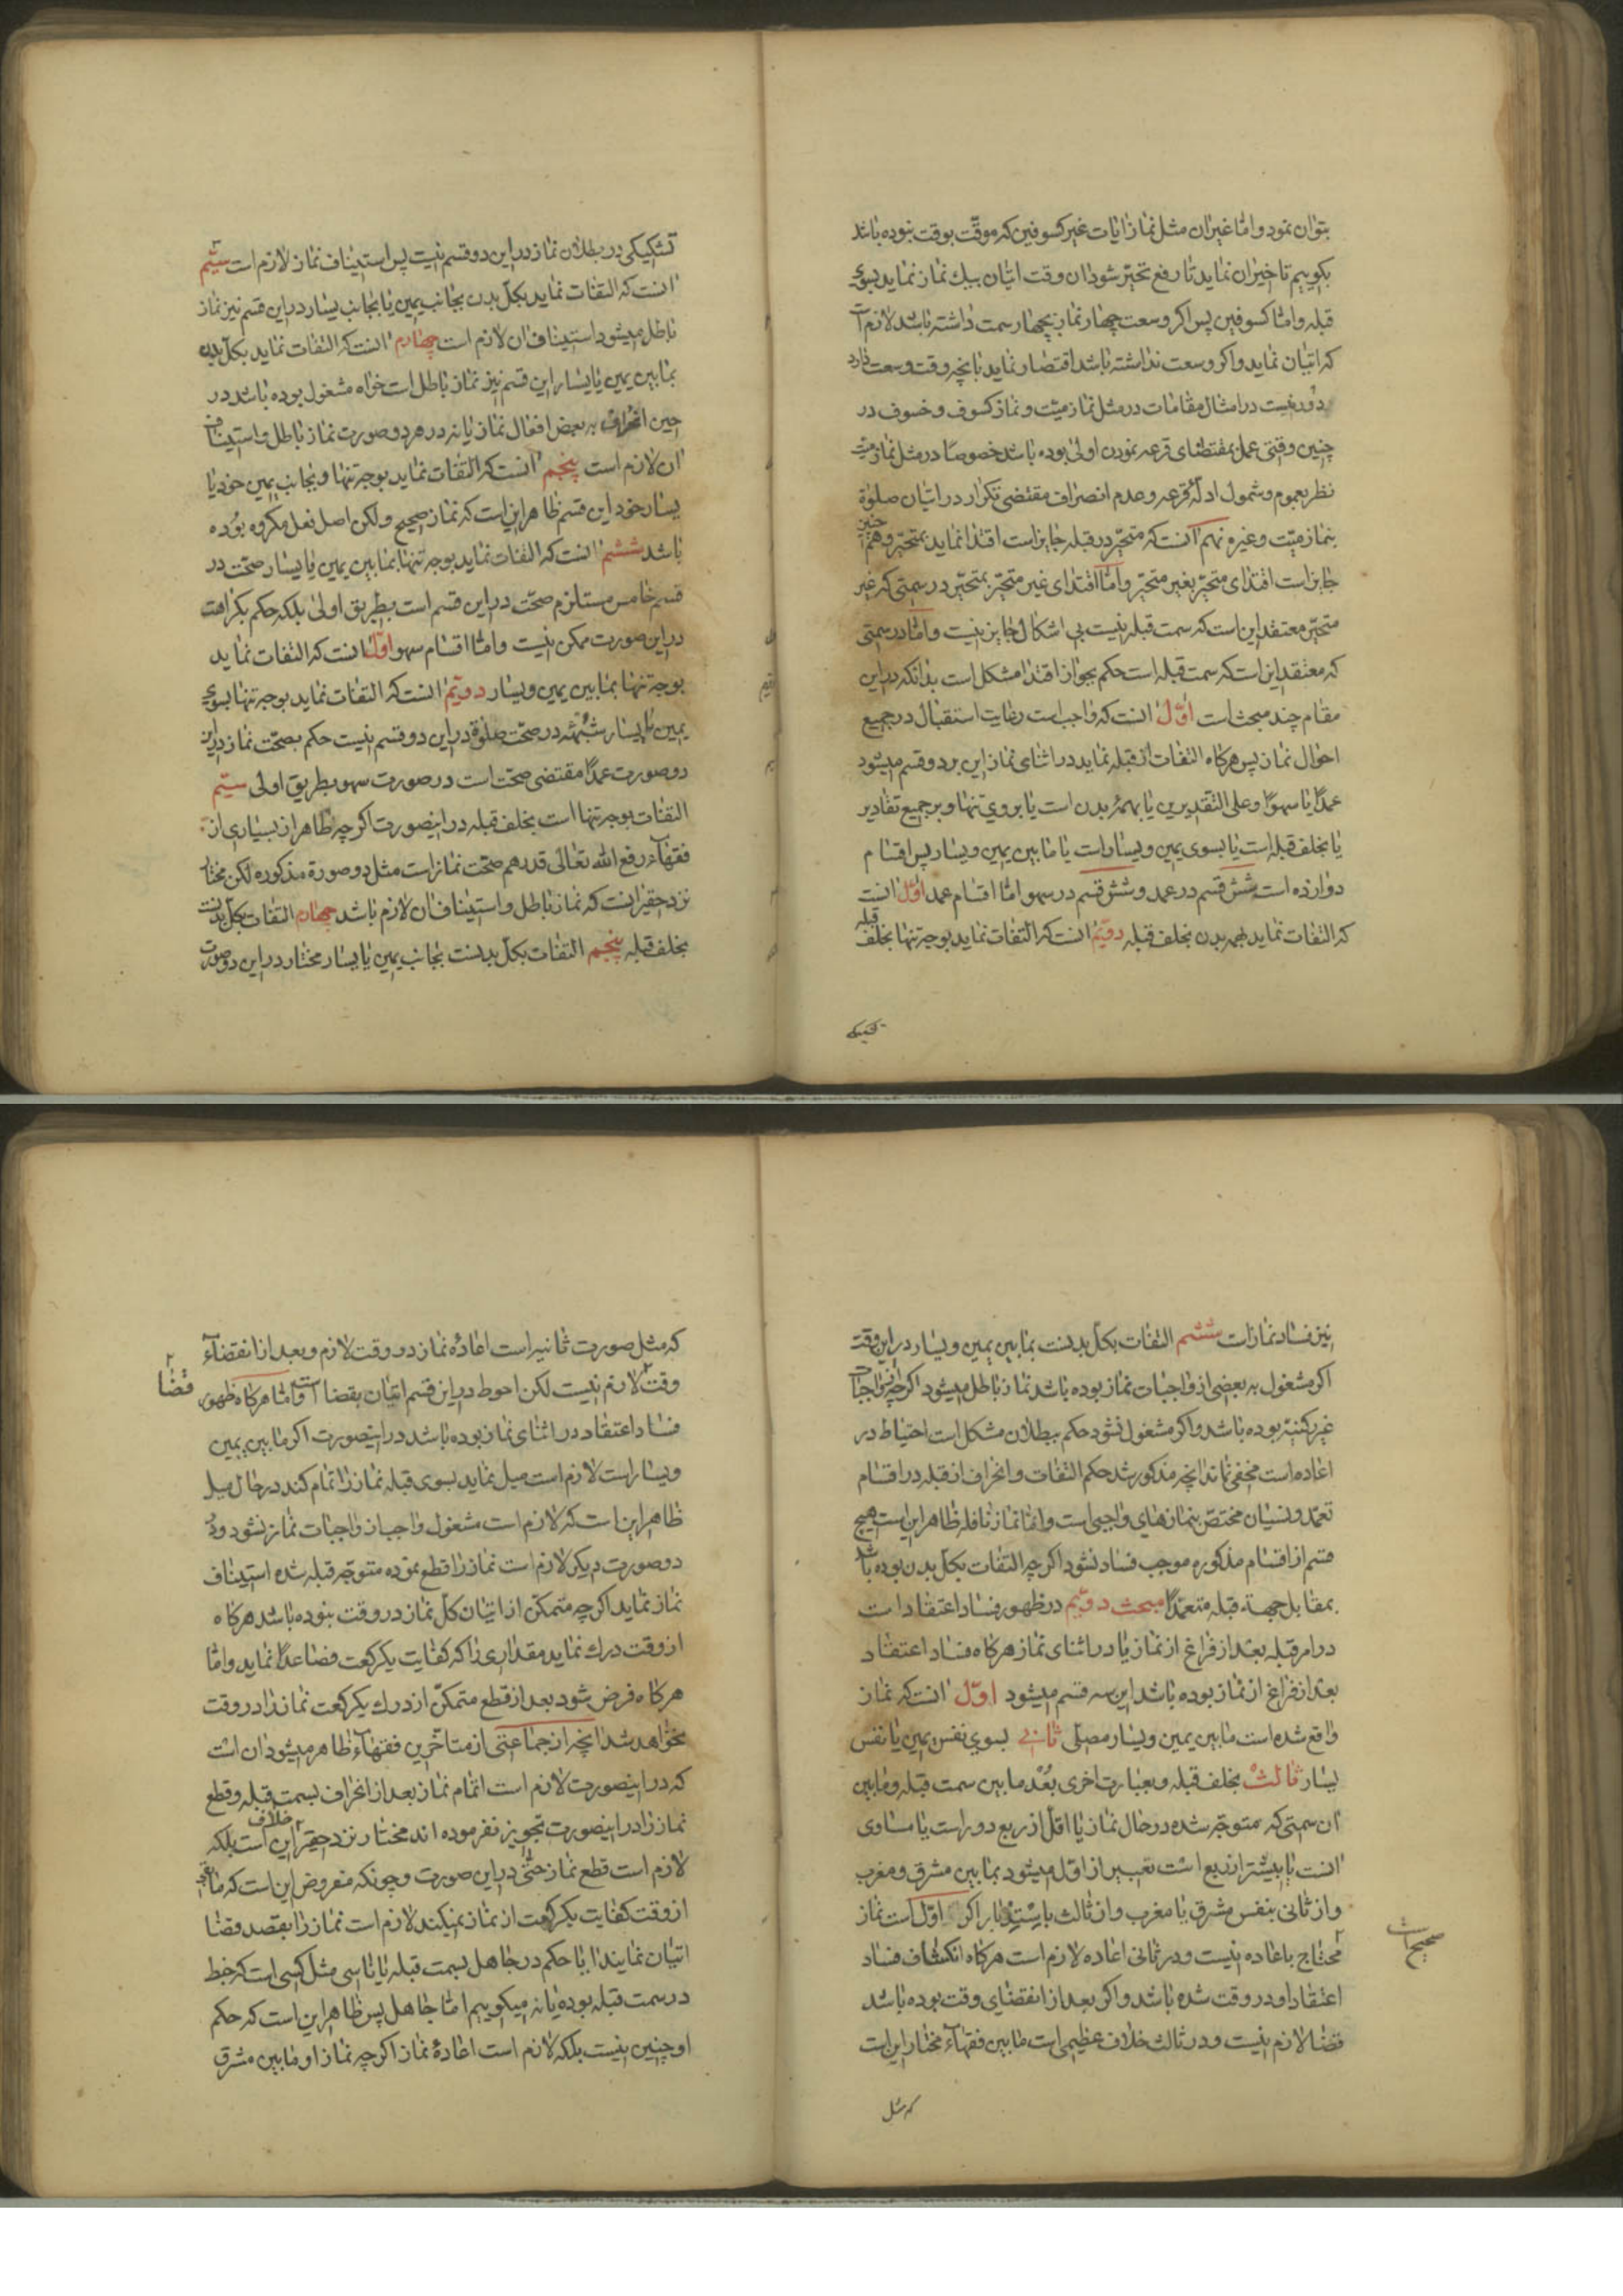 بتوان نمود و امّا غیران مثل نماز ایات غیر کسوفین که موقّت بوقت نبوده باشد
بکوییم تاخیران نماید تا رفع تحیّر شود ان وقت اتیان بیك نماز نماید بسوی
قبله و امّا کسوفین پس اکر وسعت چهار نماز بچهار سمت داشته باشد لازم
که اتیان نماید و اکر وسعت نداشته باشد اقتصار نماید بانچه وقت وسعت دارد
دور نیست در امثال مقامات در مثل نماز میّت و نماز کسوف و خسوف در
چنین وقتی عمل بمقتضای قرعه نمودن اولی بوده باشد خصوصًا در مثل نماز میّت
نظر بعموم و شمول ادلّهٔ قرعه و عدم انصراف مقتضی تکرار در اتیان صلوة
بنماز میّت و غیره نهم انست که متحیّر در قبله جایز است اقتدا نماید بمتحیّر و همچنین
جایز است اقتدای متحیّر بغیر متحیّر و امّا اقتدای غیر متحیّر بمتحیّر در سمتی که غیر
متحیّر معتقد این است که سمت قبله نیست بی اشکال جایز نیست و امّا در سمتی
که معتقد این است که سمت قبله است حکم بجواز اقتدا مشکل است بدانکه در این
مقام چند مبحث است اوّل انست که واجب است رعایت استقبال در جمیع
احوال نماز پس هرکاه التفات از قبله نماید در اثنای نماز این بر دو قسم میشود
عمدًا یا سهوًا و علی التقدیرین یا بهمهٔ بدن است یا بروی تنها و بر جمیع تقادیر
یا بخلف قبله است یا بسوی یمین و یسار است یا ما بین یمین و یسار پس اقسام
دوازده است شش قسم در عمد و شش قسم در سهو امّا اقسام عمد اوّل انست
که التفات نماید بهمه بدن بخلف قبله دویّم انست که التفات نماید بوجه تنها بخلف قبله
تشکیکی
تشکیکی در بطلان نماز در این دو قسم نیست پس استیناف نماز لازم است سیّم
انست که التفات نماید بکلّ بدن بجانب یمین یا بجانب یسار در این قسم نیز نماز
باطل میشود استیناف ان لازم است چهارم انست که التفات نماید بکلّ بدن
بما بین یمین یا یسار این قسم نیز نماز باطل است خواه مشغول بوده باشد در
حین انحراف به بعض افعال نماز یا نه در هر دو صورت نماز باطل و استیناف
ان لازم است پنجم انست که التفات نماید بوجه تنها و بجانب یمین خود یا
یسار خود این قسم ظاهر این است که نماز صحیح و لکن اصل فعل مکروه بوده
باشد ششم انست که التفات نماید بوجه تنها بما بین یمین یا یسار صحّت در
قسم خامس مستلزم صحّت در این قسم است بطریق اولی بلکه حکم بکراهت
در این صورت ممکن نیست و امّا اقسام سهو اوّل انست که التفات نماید
بوجه تنها بما بین یمین و یسار دویّم انست که التفات نماید بوجه تنها بسوی
یمین یا یسار شبهه در صحّت صلوة در این دو قسم نیست حکم بصحّت نماز در این
دو صورت عمدًا مقتضی صحّت است در صورت سهو بطریق اولی سیّم
التفات بوجه تنها است بخلف قبله در اینصورت اکرچه ظاهر از بسیاری از
فقهاء رفع الله تعالی قدرهم صحّت نماز است مثل دو صورة مذکوره لکن مختار
نزد حقیر انست که نماز باطل و استیناف ان لازم باشد چهارم التفات بکلّ بدنست
بخلف قبله پنجم التفات بکلّ بدنست بجانب یمین یا یسار مختار در این دو صورت
نیز فساد نماز است ششم التفات بکلّ بدنست بما بین یمین و یسار در این وقت
اکر مشغول به بعضی از واجبات نماز بوده باشد نماز باطل میشود اکرچه از واجبات
غیر رکنیّه بوده باشد و اکر مشغول نشود حکم ببطلان مشکل است احتیاط در
اعاده است مخفی نماند انچه مذکور شد حکم التفات و انحراف از قبله در اقسام
تعمّد و نسیان مختصّ بنماز های واجبی است و امّا نماز نافله ظاهر این است هیچ
قسم از اقسام مذکوره موجب فساد نشود اکرچه التفات بکلّ بدن بوده باشد
بمقابل جهة قبله متعمّدًا مبحث دویّم در ظهور فساد اعتقاد است
در امر قبله بعد از فراغ از نماز یا در اثنای نماز هرکاه فساد اعتقاد
بعد از فراغ از نماز بوده باشد این سه قسم میشود اوّل انست که نماز
واقع شده است ما بین یمین و یسار مصلّی ثانی بسوی نفس یمین یا نفس
یسار ثالث بخلف قبله و بعبارت اخری بُعْد ما بین سمت قبله و ما بین
ان سمتی که متوجّه شده در حال نماز یا اقلّ از ربع دور است یا مساوی
انست یا بیشتر از ربع است تعبیر از اوّل میشود بما بین مشرق و مغرب
و از ثانی بنفس مشرق یا مغرب و از ثالث باستدبار اکر اوّل است نماز
صحیح است
محتاج باعاده نیست و در ثانی اعاده لازم است هرکاه انکشاف فساد
اعتقاد او در وقت شده باشد و اکر بعد از انقضای وقت بوده باشد
قضا لازم نیست و در ثالث خلاف عظیمی است ما بین فقهاء مختار این است
که مثل
که مثل صورت ثانیه است اعادهٔ نماز در وقت لازم و بعد از انقضاء
وقت لازم نیست لکن احوط در این قسم اتیان بقضا است و امّا هرکاه ظهور
قضا
فساد اعتقاد در اثنای نماز بوده باشد در اینصورت اکر ما بین یمین
و یسار است لازم است میل نماید بسوی قبله نماز را تمام کند در حال میل
ظاهر این است که لازم است مشغول واجب از واجبات نماز نشود و در
دو صورت دیکر لازم است نماز را قطع نموده متوجّه قبله شده استیناف
نماز نماید اکرچه متمکّن از اتیان کلّ نماز در وقت نبوده باشد هرکاه
از وقت درك نماید مقداری را که کفایت یکرکعت فصاعدًا نماید و امّا
هرکاه فرض شود بعد از قطع متمکّن از درك یکرکعت نماز را در وقت
نخواهد شد انچه از جماعتی از متأخّرین فقهاء ظاهر میشود ان است
که در اینصورت لازم است اتمام نماز بعد از انحراف بسمت قبله و قطع
نماز را در اینصورت تجویز نفرموده اند مختار نزد حقیر خلاف این است بلکه
لازم است قطع نماز حتّی در این صورت و چونکه مفروض این است که ما بقی
از وقت کفایت یکرکعت از نماز نمیکند لازم است نماز را بقصد قضا
اتیان نمایند ایا حکم در جاهل بسمت قبله یا ناسی مثل کسی است که خبط
در سمت قبله بوده یا نه میکوییم امّا جاهل پس ظاهر این است که حکم
او چنین نیست بلکه لازم است اعادهٔ نماز اکرچه نماز او ما بین مشرق